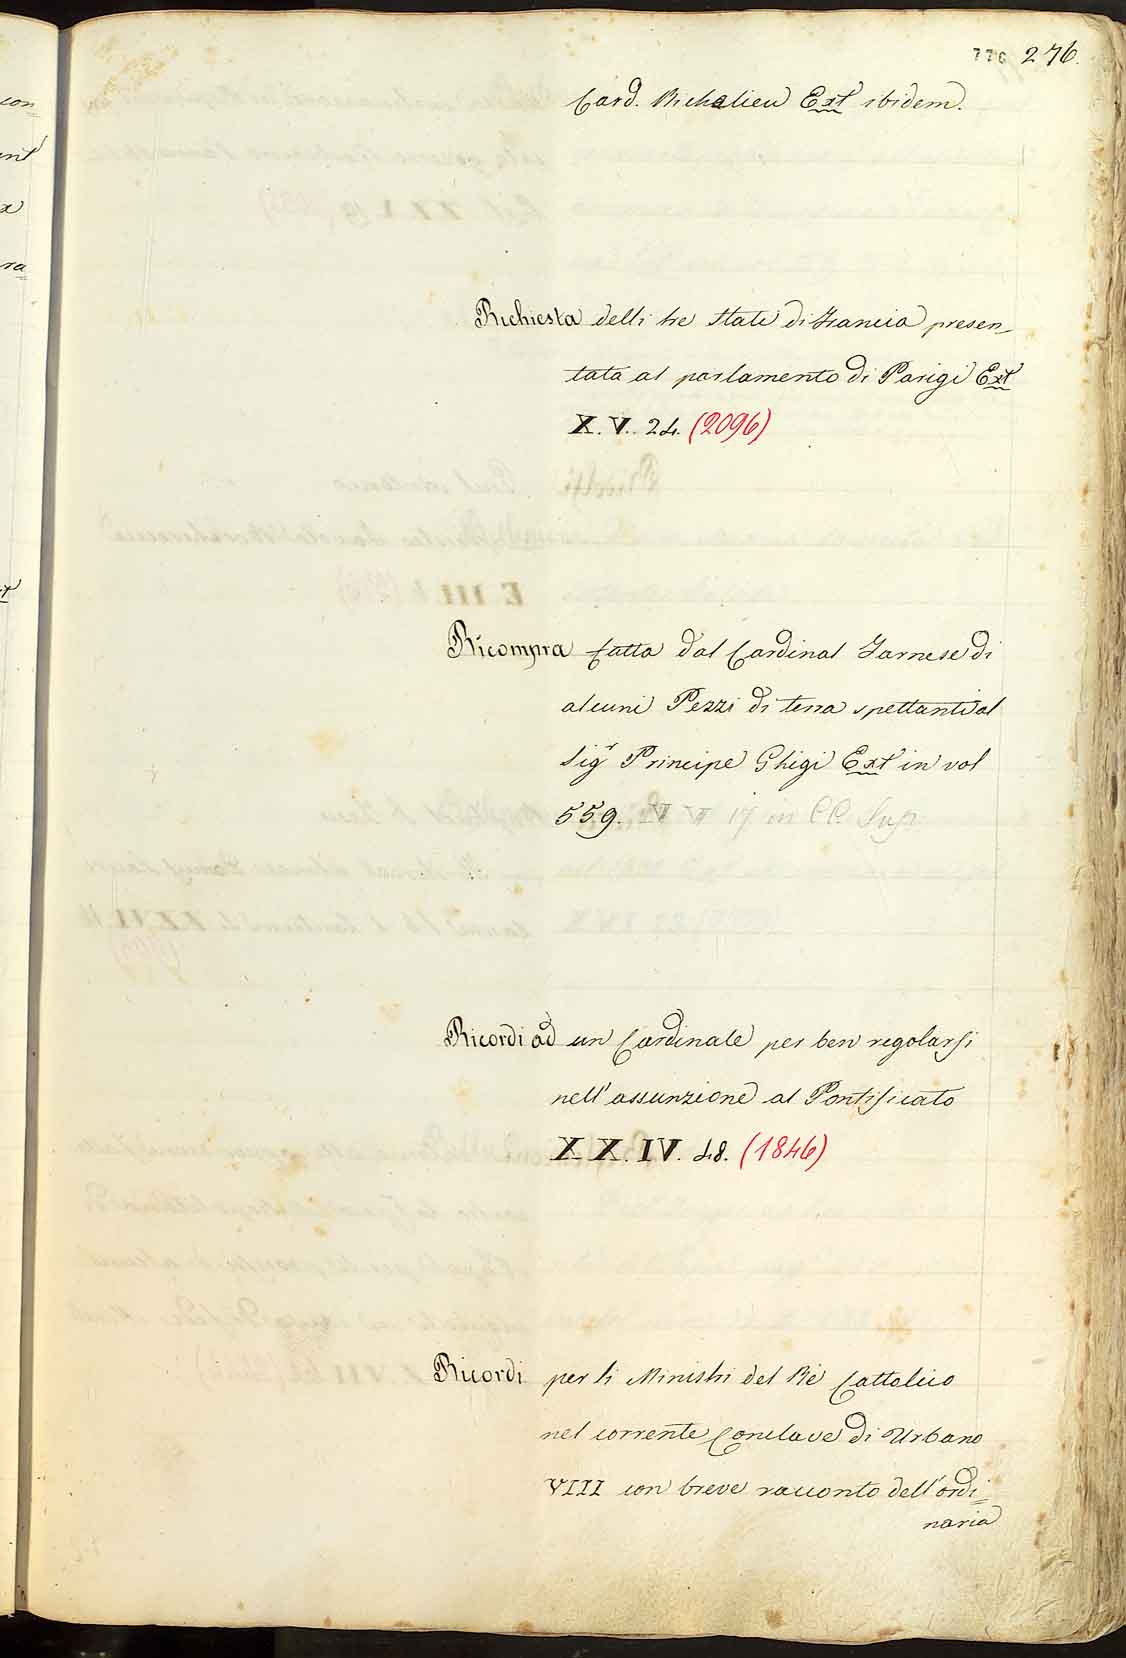 776 276.
Card. Richelieu Ext ibidem.
Richiesta delli tre Stati di Francia presen-
tata al parlamento di Parigi Ext
X. V. 24. (2096)
Ricompra fatta dal Cardinal Farnese di
alcuni Pezzi di terra spettanti al
Sigr Principe Ghigi Ext in vol
559. IV VI 17 in CC. Sup
Ricordi ad un Cardinale per ben regolarsi
nell'assunzione al Pontificato
XX. IV. 48. (1846)
Ricordi per li Ministri del Rè Cattolico
nel corrente Conclave di Urbano
VIII con breve racconto dell'ordi=
naria